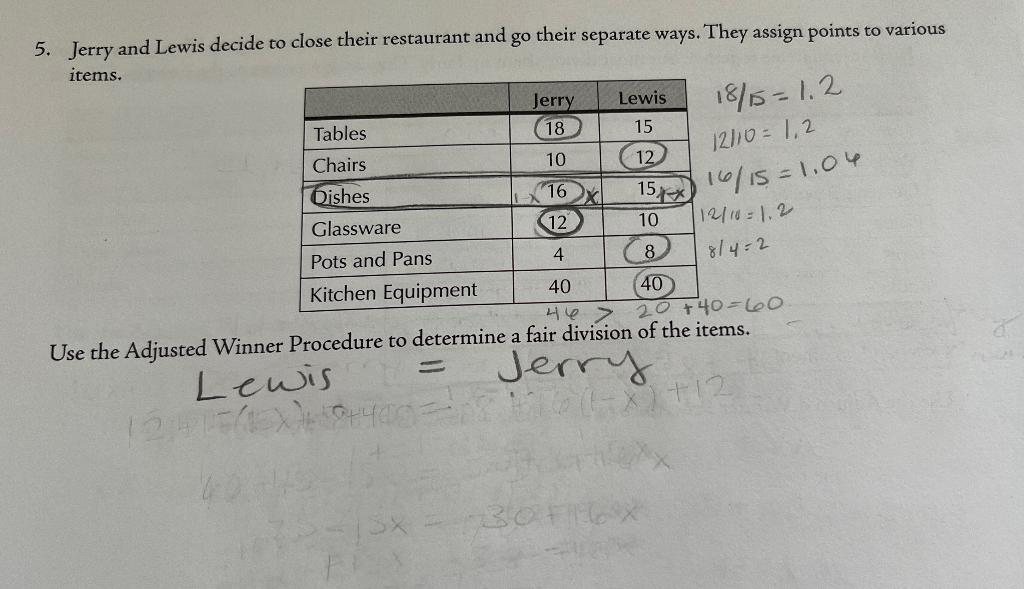 5. Jerry and Lewis decide to close their restaurant and go their separate ways. They assign points to various
items.
Jerry Lewis 18/15 = 1.2
Tables 18 15
12/10 = 1.2
Chairs 10 12
Dishes 1-x 16 x 15 1-x 16/15 = 1.06
Glassware 12 10 12/10 = 1.2
Pots and Pans 4 8 8/4 = 2
Kitchen Equipment 40 40
46 > 20 + 40 = 60
Use the Adjusted Winner Procedure to determine a fair division of the items.
Lewis = Jerry